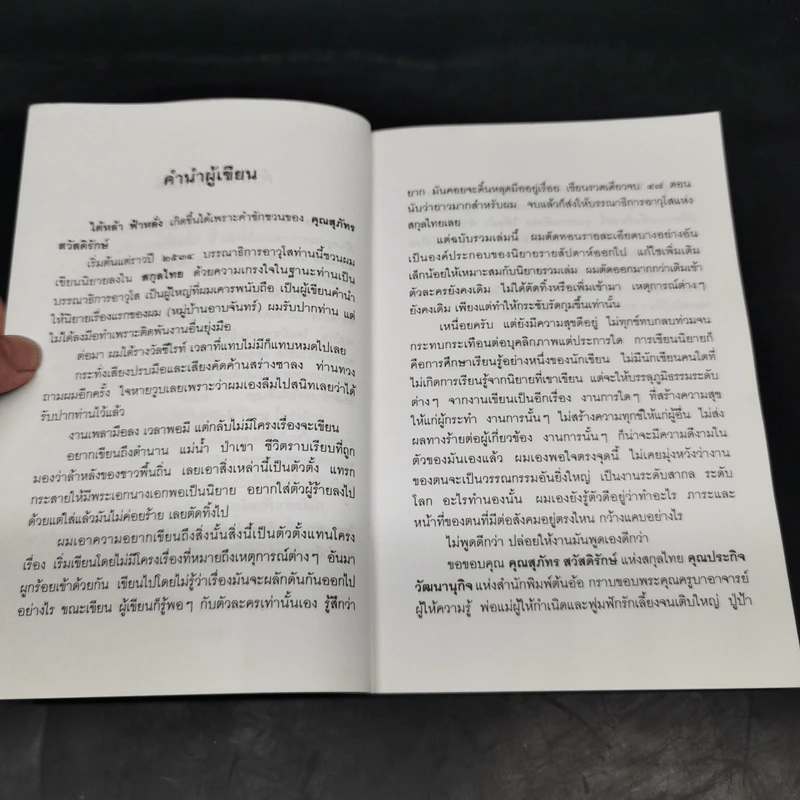 คำนำผู้เขียน
ใต้หล้า ฟ้าหลั่ง เกิดขึ้นได้เพราะคำชักชวนของ คุณสุภัทร
สวัสดิรักษ์
เริ่มต้นแต่ราวปี ๒๕๓๔ บรรณาธิการอาวุโสท่านนี้ชวนผม
เขียนนิยายลงใน สกุลไทย ด้วยความเกรงใจในฐานะท่านเป็น
บรรณาธิการอาวุโส เป็นผู้ใหญ่ที่ผมเคารพนับถือ เป็นผู้เขียนคำนำ
ให้นิยายเรื่องแรกของผม (หมู่บ้านอาบจันทร์) ผมรับปากท่าน แต่
ไม่ได้ลงมือทำเพราะติดพันงานอื่นยุ่งมือ
ต่อมา ผมได้รางวัลซีไรท์ เวลาที่แทบไม่มีก็แทบหมดไปเลย
กระทั่งเสียงปรบมือและเสียงคัดค้านสร่างซาลง ท่านทวง
ถามผมอีกครั้ง ใจหายวูบเลยเพราะว่าผมเองลืมไปสนิทเลยว่าได้
รับปากท่านไว้แล้ว
งานเพลามือลง เวลาพอมี แต่กลับไม่มีโครงเรื่องจะเขียน
อยากเขียนถึงตำนาน แม่น้ำ ป่าเขา ชีวิตราบเรียบที่ถูก
มองว่าล้าหลังของชาวพื้นถิ่น เลยเอาสิ่งเหล่านี้เป็นตัวตั้ง แทรก
กระสายให้มีพระเอกนางเอกพอเป็นนิยาย อยากใส่ตัวผู้ร้ายลงไป
ด้วยแต่ใส่แล้วมันไม่ค่อยร้าย เลยตัดทิ้งไป
ผมเอาความอยากเขียนถึงสิ่งนั้นสิ่งนี้เป็นตัวตั้งแทนโครง
เรื่อง เริ่มเขียนโดยไม่มีโครงเรื่องที่หมายถึงเหตุการณ์ต่างๆ อันมา
ผูกร้อยเข้าด้วยกัน เขียนไปโดยไม่รู้ว่าเรื่องมันจะผลักดันกันออกไป
อย่างไร ขณะเขียน ผู้เขียนก็รู้พอๆ กับตัวละครเท่านั้นเอง รู้สึกว่า
ยาก มันคอยจะดิ้นหลุดมืออยู่เรื่อย เขียนรวดเดียวจบ ๔๗ ตอน
นับว่ายาวมากสำหรับผม จบแล้วก็ส่งให้บรรณาธิการอาวุโสแห่ง
สกุลไทยเลย
แต่ฉบับรวมเล่มนี้ ผมตัดทอนรายละเอียดบางอย่างอัน
เป็นองค์ประกอบของนิยายรายสัปดาห์ออกไป แก้ไขเพิ่มเติม
เล็กน้อยให้เหมาะสมกับนิยายรวมเล่ม ผมตัดออกมากกว่าเติมเข้า
ตัวละครยังคงเดิม ไม่ได้ตัดทิ้งหรือเพิ่มเข้ามา เหตุการณ์ต่างๆ
ยังคงเดิม เพียงแต่ทำให้กระชับรัดกุมขึ้นเท่านั้น
เหนื่อยครับ แต่ยังมีความสุขดีอยู่ ไม่ทุกข์ทบกลบท่วมจน
กระทบกระเทือนต่อบุคลิกภาพแต่ประการใด การเขียนนิยายก็
คือการศึกษาเรียนรู้อย่างหนึ่งของนักเขียน ไม่มีนักเขียนคนใดที่
ไม่เกิดการเรียนรู้จากนิยายที่เขาเขียน แต่จะให้บรรลุภูมิธรรมระดับ
ต่างๆ จากงานเขียนเป็นอีกเรื่อง งานการใดๆ ที่สร้างความสุข
ให้แก่ผู้กระทำ งานการนั้นๆ ไม่สร้างความทุกข์ให้แก่ผู้อื่น ไม่ส่ง
ผลทางร้ายต่อผู้เกี่ยวข้อง งานการนั้นๆ ก็น่าจะมีความดีงามใน
ตัวของมันเองแล้ว ผมเองพอใจตรงจุดนี้ ไม่เคยมุ่งหวังว่างาน
ของตนจะเป็นวรรณกรรมอันยิ่งใหญ่ เป็นงานระดับสากล ระดับ
โลก อะไรทำนองนั้น ผมเองยังรู้ตัวดีอยู่ว่าทำอะไร ภาระและ
หน้าที่ของตนที่มีต่อสังคมอยู่ตรงไหน กว้างแคบอย่างไร
ไม่พูดดีกว่า ปล่อยให้งานมันพูดเองดีกว่า
ขอขอบคุณ คุณสุภัทร สวัสดิรักษ์ แห่งสกุลไทย คุณประกิจ
วัฒนานุกิจ แห่งสำนักพิมพ์ต้นอ้อ กราบขอบพระคุณครูบาอาจารย์
ผู้ให้ความรู้ พ่อแม่ผู้ให้กำเนิดและฟูมฟักรักเลี้ยงจนเติบใหญ่ ปู่ป้า